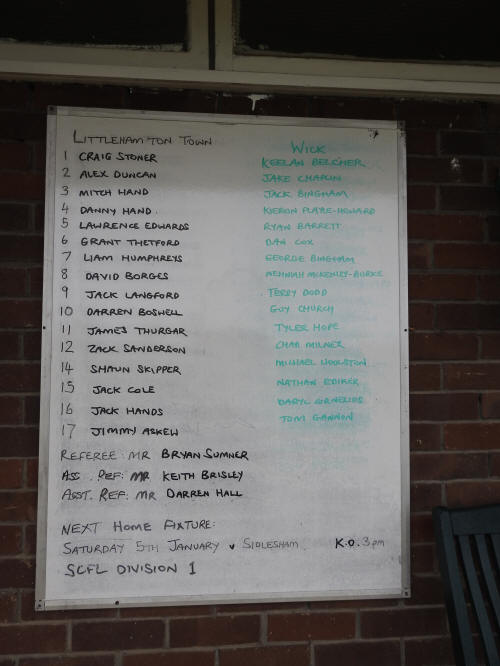 LITTLEHAMTON TOWN WICK
1 CRAIG STONER KEELAN BELCHER
2 ALEX DUNCAN JAKE CHAPLIN
3 MITCH HAND JACK BINGHAM
4 DANNY HAND. KIERON PLAYLE-HOWARD
5 LAWRENCE EDWARDS RYAN BARRETT
6 GRANT THETFORD DAN COX
7 LIAM HUMPHREYS GEORGE BINGHAM
8 DAVID BORGES MCKENLEY-BURKE
9 JACK LANGFORD TERRY DODD
10 DARREN BOSWELL GUY CHURCH
11 JAMES THURGAR TYLER HOPE
12 ZACK SANDERSON CHAD MILNER
14 SHAUN SKIPPER MICHAEL WOOLSTON
15 JACK COLE NATHAN
16 JACK HANDS DARYL CORNELIUS
17 JIMMY ASKEW TOM GANNON
REFEREE: MR BRYAN SUMNER
ASS. REF: MR KEITH BRISLEY
ASST. REF: MR DARREN HALL
NEXT HOME FIXTURE:
SATURDAY 5TH JANUARY v SIDLESHAM K.O. 3pm
SCFL DIVISION 1